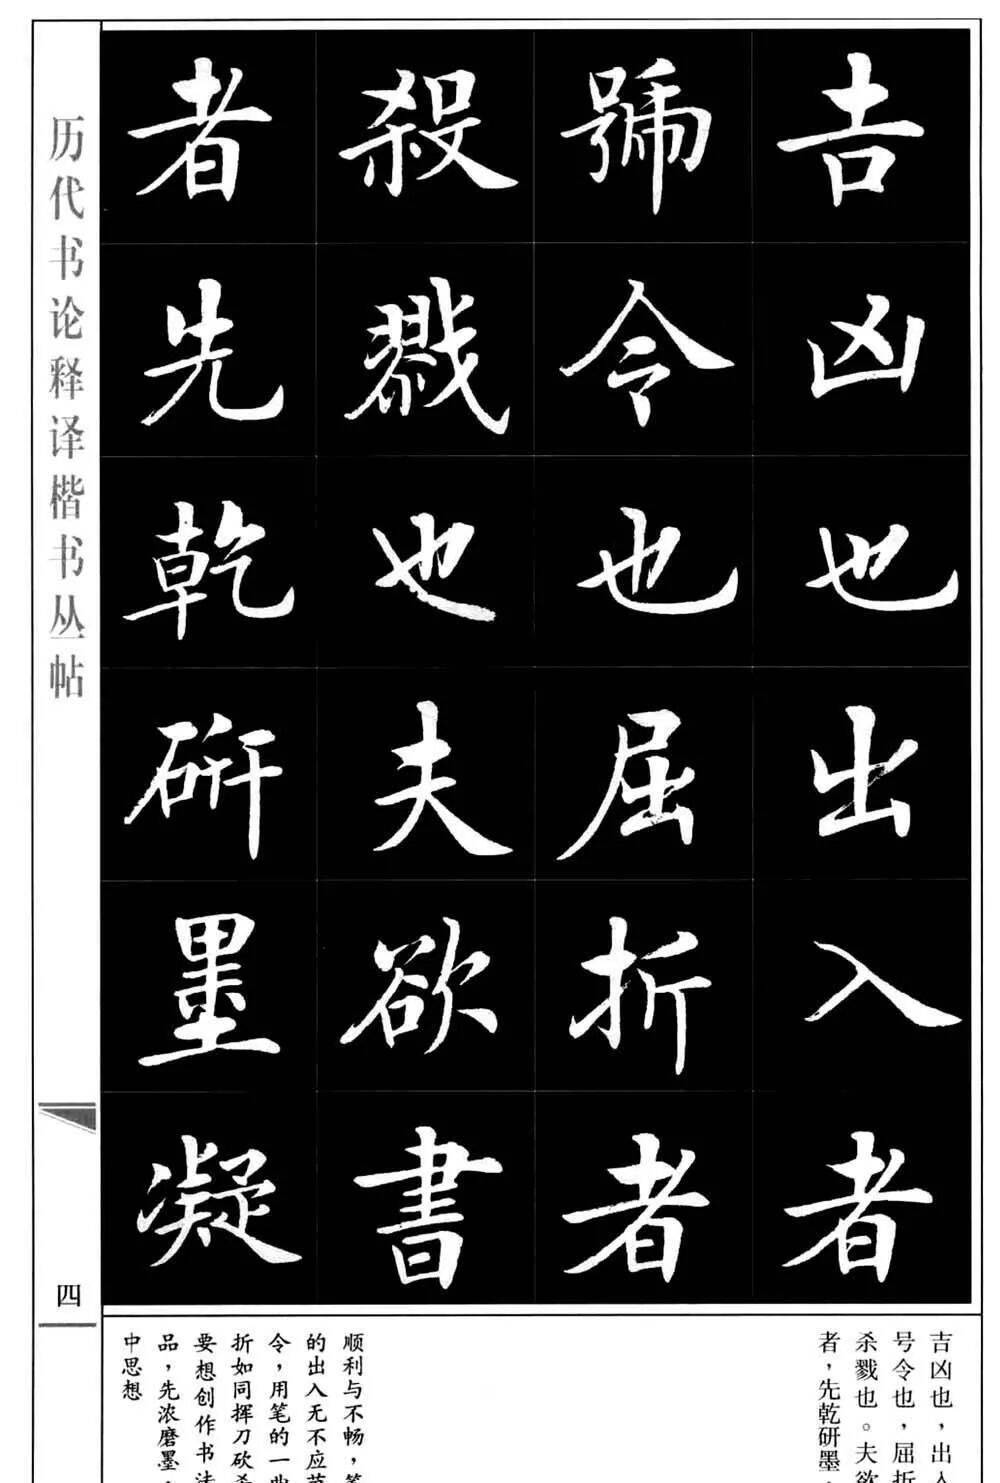 吉凶也出入者
號令也屈折者
殺戮也夫欲書
者先乾研墨凝
历代书论释译楷书丛帖
四
吉凶也，出入
号令也，屈折
杀戮也。夫欲
者，先乾研墨，
顺利与不畅，笔
的出入无不应
令，用笔的一曲
折如同挥刀砍杀
要想创作书法
品，先浓磨墨，
中思想